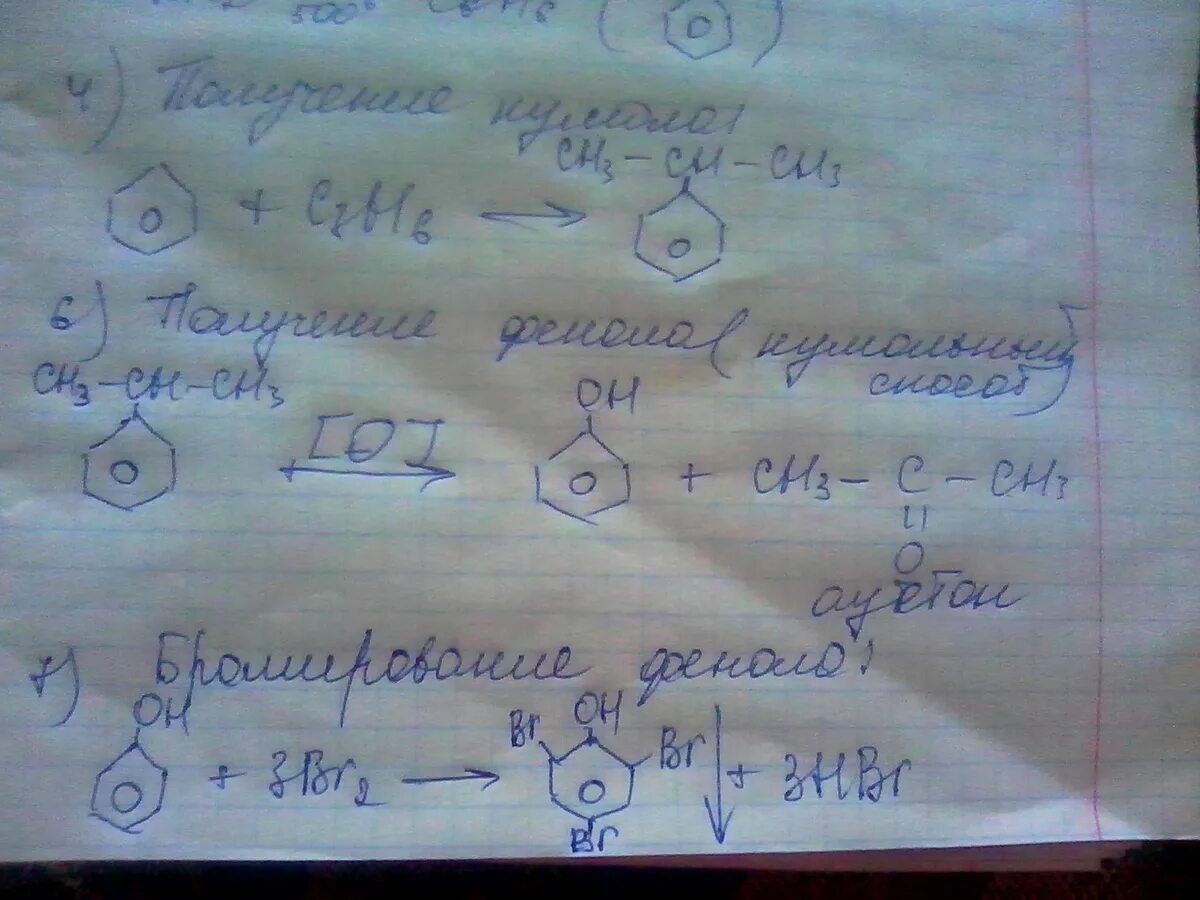 500° C₆H₆ ( )
4) Получение кумола:
CH₃ – CH – CH₃
+ C₃H₆ →
6) Получение фенола (кумольный
способ)
CH₃ – CH – CH₃
OH
[O] → + CH₃ – C – CH₃
O
ацетон
7) Бромирование фенола:
OH Br OH Br
+ 3Br₂ → ↓ + 3HBr
Br